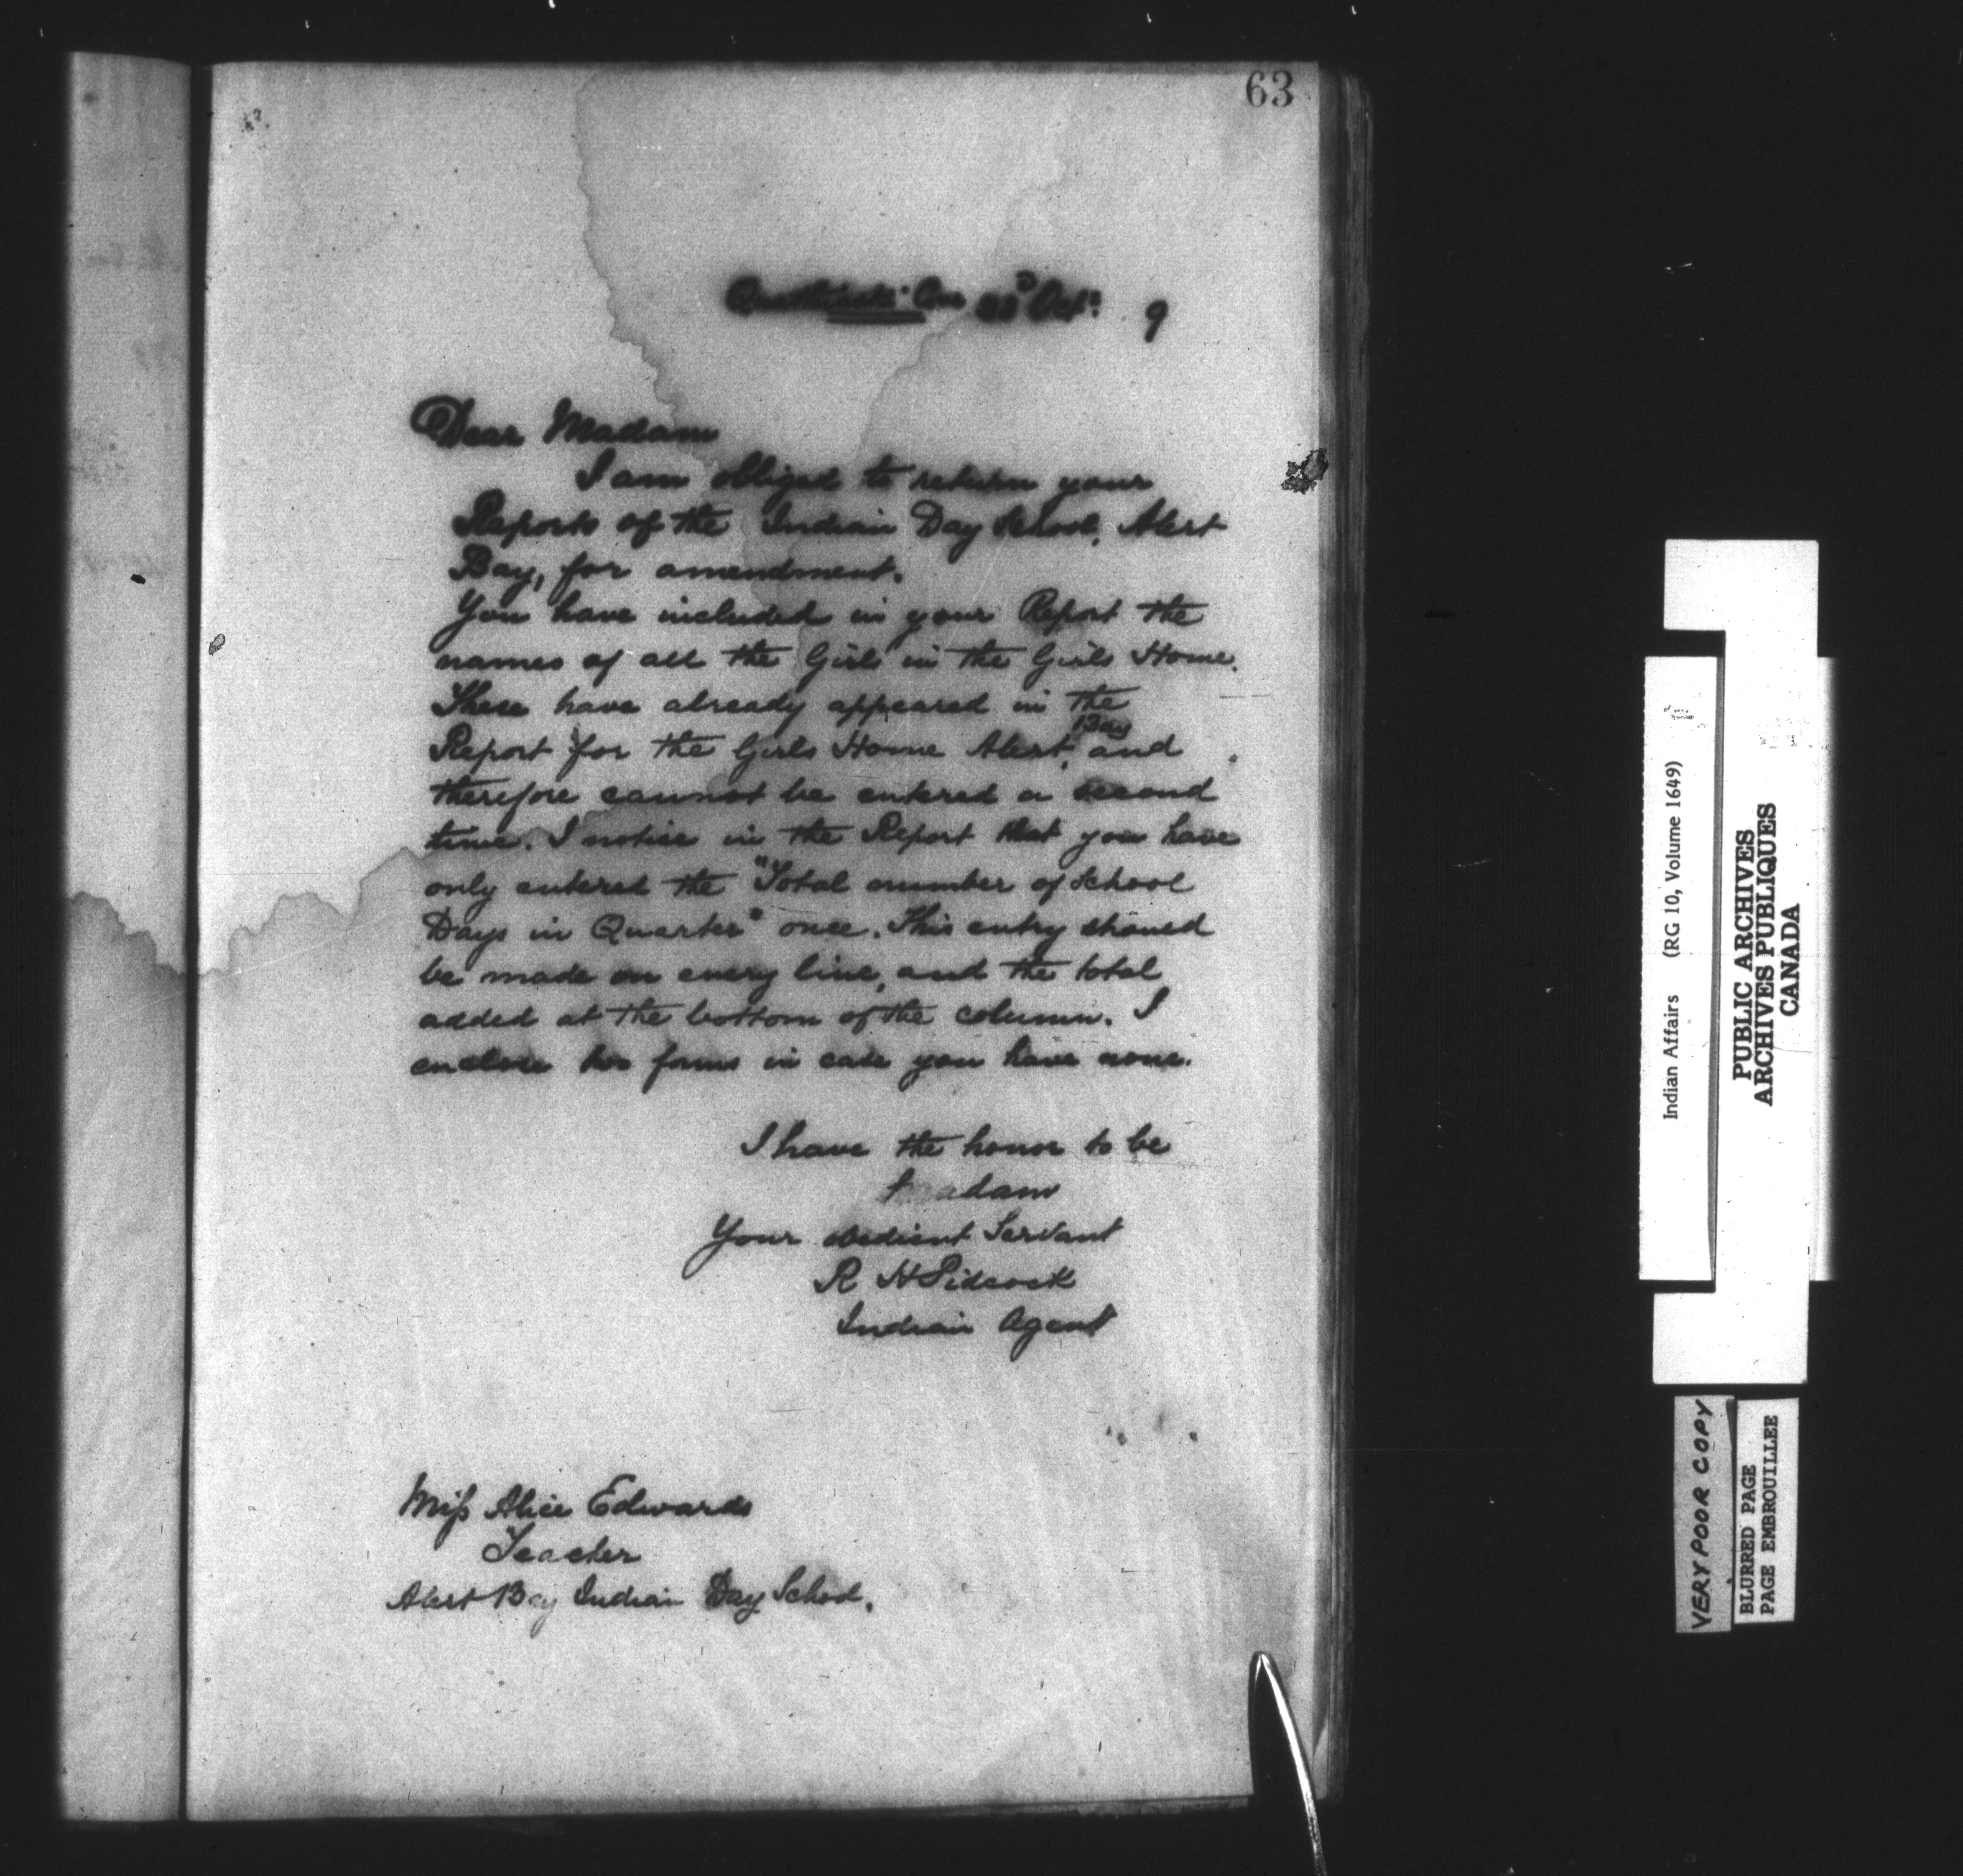 63
Quathiaski Cove Oct. 9
Dear Madam
I am obliged to return your
Reports of the Indian Day School, Alert
Bay, for amendment.
You have included in your Report the
names of all the Girls in the Girls Home.
These have already appeared in the
Report for the Girls Home Alert Bay and
therefore cannot be entered a second
time. I notice in the Report that you have
only entered the "Total number of School
Days in Quarter" once. This entry should
be made on every line, and the total
added at the bottom of the column. I
enclose two forms in case you have none.
I have the honor to be
Madam
Your obedient Servant
R H Pidcock
Indian Agent
Miss Alice Edwards
Teacher
Alert Bay Indian Day School.
Indian Affairs (RG 10, Volume 1649)
PUBLIC ARCHIVES
ARCHIVES PUBLIQUES
CANADA
VERY POOR COPY
BLURRED PAGE
PAGE EMBROUILLEE